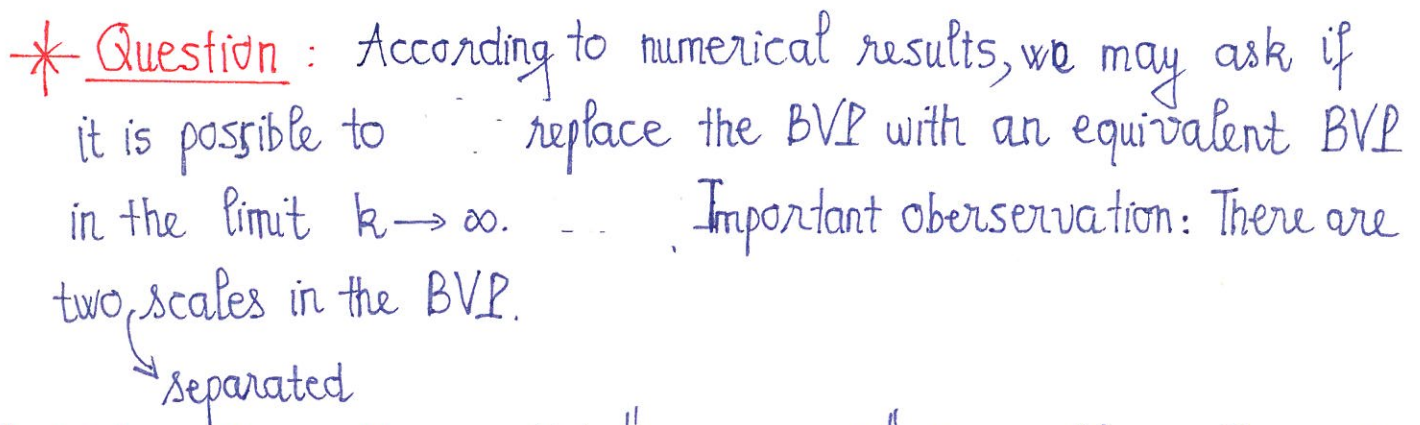 * Question : According to numerical results, we may ask if
it is possible to replace the BVP with an equivalent BVP
in the limit k → ∞. Important oberservation: There are
two scales in the BVP.
separated